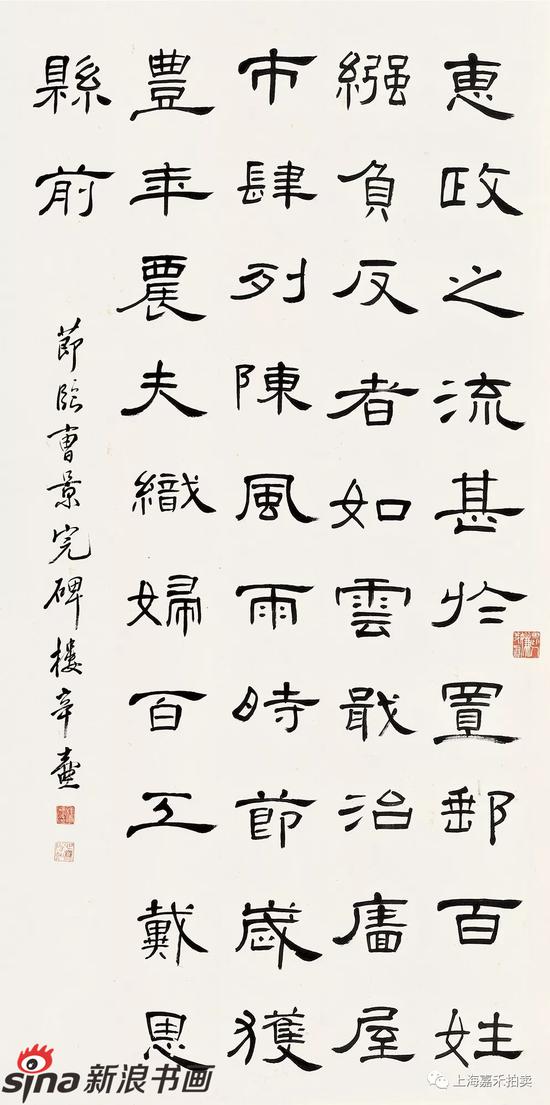 惠政之流甚於置郵百姓
繦負反者如雲戢治廧屋
市肆列陳風雨時節歲獲
豊年農夫織婦百工戴恩
縣前
節臨曹景完碑樓辛壷
sina新浪书画
上海嘉禾拍卖